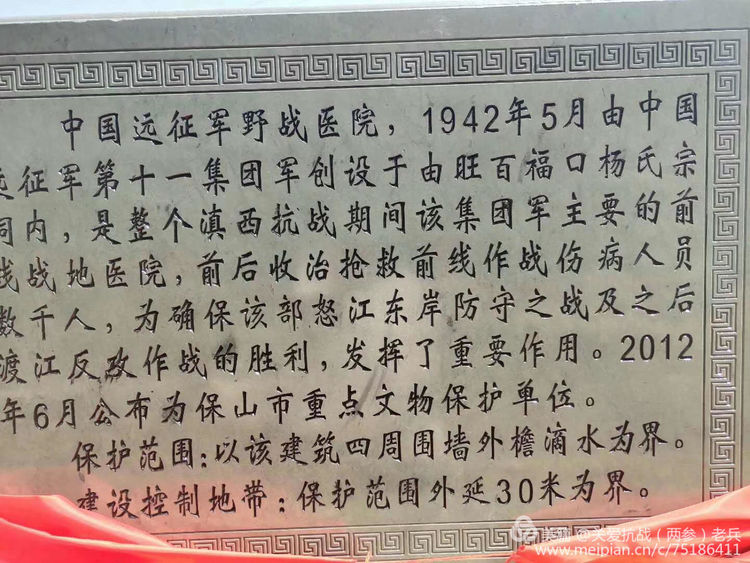 中国远征军野战医院，1942年5月由中国
远征军第十一集团军创设于由旺百福口杨氏宗
祠内，是整个滇西抗战期间该集团军主要的前
线战地医院，前后收治抢救前线作战伤病人员
数千人，为确保该部怒江东岸防守之战及之后
渡江反攻作战的胜利，发挥了重要作用。2012
年6月公布为保山市重点文物保护单位。
保护范围：以该建筑四周围墙外檐滴水为界。
建设控制地带：保护范围外延30米为界。
美篇@关爱抗战（两参）老兵
www.meipian.cn/c/75186411